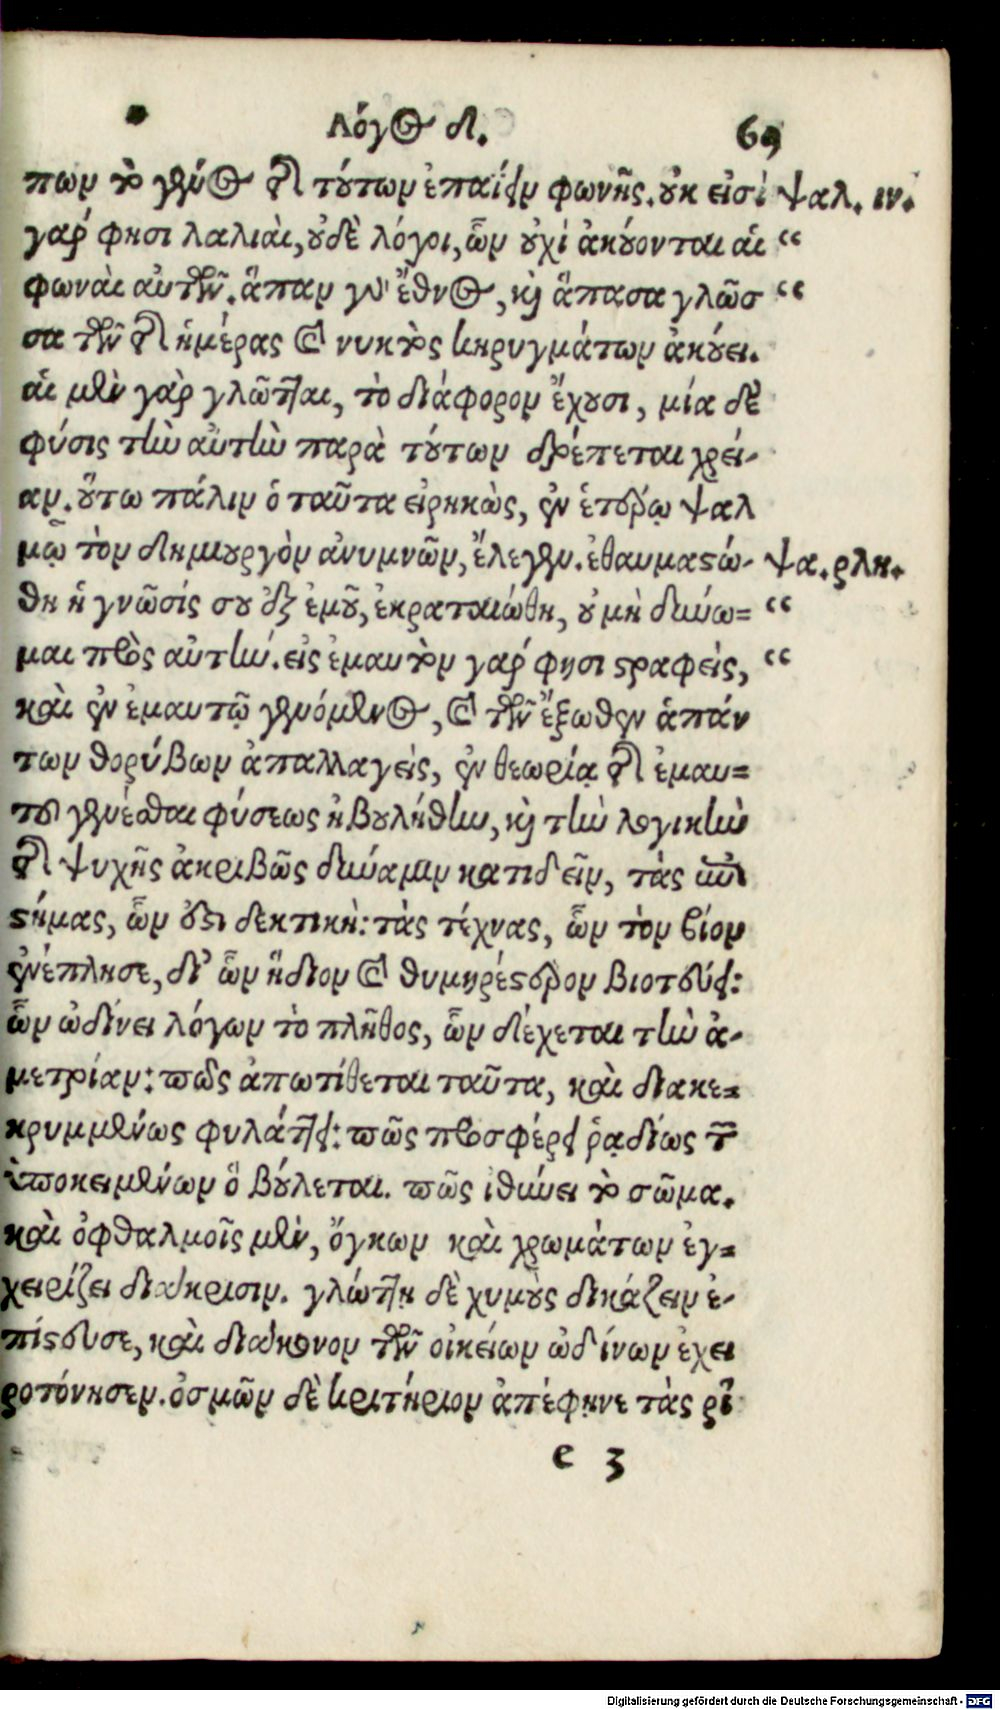 Λόγος δ. 69
πων τὸ γένος τῆς τούτων ἐπαΐει φωνῆς. οὐκ εἰσὶ ψαλ. ιν.
γάρ φησι λαλιαὶ, οὐδὲ λόγοι, ὧν οὐχὶ ἀκούονται αἱ “
φωναὶ αὐτῶν. ἅπαν γὰρ ἔθνος, καὶ ἅπασα γλῶσ “
σα τῶν τῆς ἡμέρας καὶ νυκτὸς κηρυγμάτων ἀκούει.
αἱ μὲν γὰρ γλῶτται, τὸ διάφορον ἔχουσι, μία δὲ
φύσις τὴν αὐτὴν παρὰ τούτων δρέπεται χρεί-
αν. οὕτω πάλιν ὁ ταῦτα εἰρηκὼς, ἐν ἑτέρῳ ψαλ
μῷ τὸν δημιουργὸν ἀνυμνῶν, ἔλεγεν. ἐθαυμαστώ- ψα. ρλη.
θη ἡ γνῶσίς σου ἐξ ἐμοῦ, ἐκραταιώθη, οὐ μὴ δύνω= “
μαι πρὸς αὐτήν. εἰς ἐμαυτὸν γάρ φησι στραφεὶς, “
καὶ ἐν ἐμαυτῷ γενόμενος, καὶ τῶν ἔξωθεν ἁπάν
των θορύβων ἀπαλλαγεὶς, ἐν θεωρίᾳ τῆς ἐμαυ=
τοῦ γενέσθαι φύσεως ἠβουλήθην, καὶ τὴν λογικὴν
τῆς ψυχῆς ἀκριβῶς δύναμιν κατιδεῖν, τὰς ἐπι
στήμας, ὧν ἐστι δεκτική: τὰς τέχνας, ὧν τὸν βίον
ἐνέπλησε, δι’ ὧν ἥδιον καὶ θυμηρέστερον βιοτεύει:
ὧν ὠδίνει λόγων τὸ πλῆθος, ὧν δέχεται τὴν ἀ-
μετρίαν: πῶς ἀπωτίθεται ταῦτα, καὶ διακε=
κρυμμένως φυλάττει: πῶς προσφέρει ῥᾳδίως τῶν
ὑποκειμένων ὃ βούλεται. πῶς ἰθύνει τὸ σῶμα.
καὶ ὀφθαλμοῖς μὲν, ὄγκων καὶ χρωμάτων ἐγ=
χειρίζει διάκρισιν. γλώττῃ δὲ χυμοὺς δικάζειν ἐ-
πίστευσε, καὶ διάκονον τῶν οἰκείων ὠδίνων ἐχει
ροτόνησεν. ὀσμῶν δὲ κριτήριον ἀπέφηνε τὰς ῥῖ
e 3
Digitalisierung gefördert durch die Deutsche Forschungsgemeinschaft - DFG